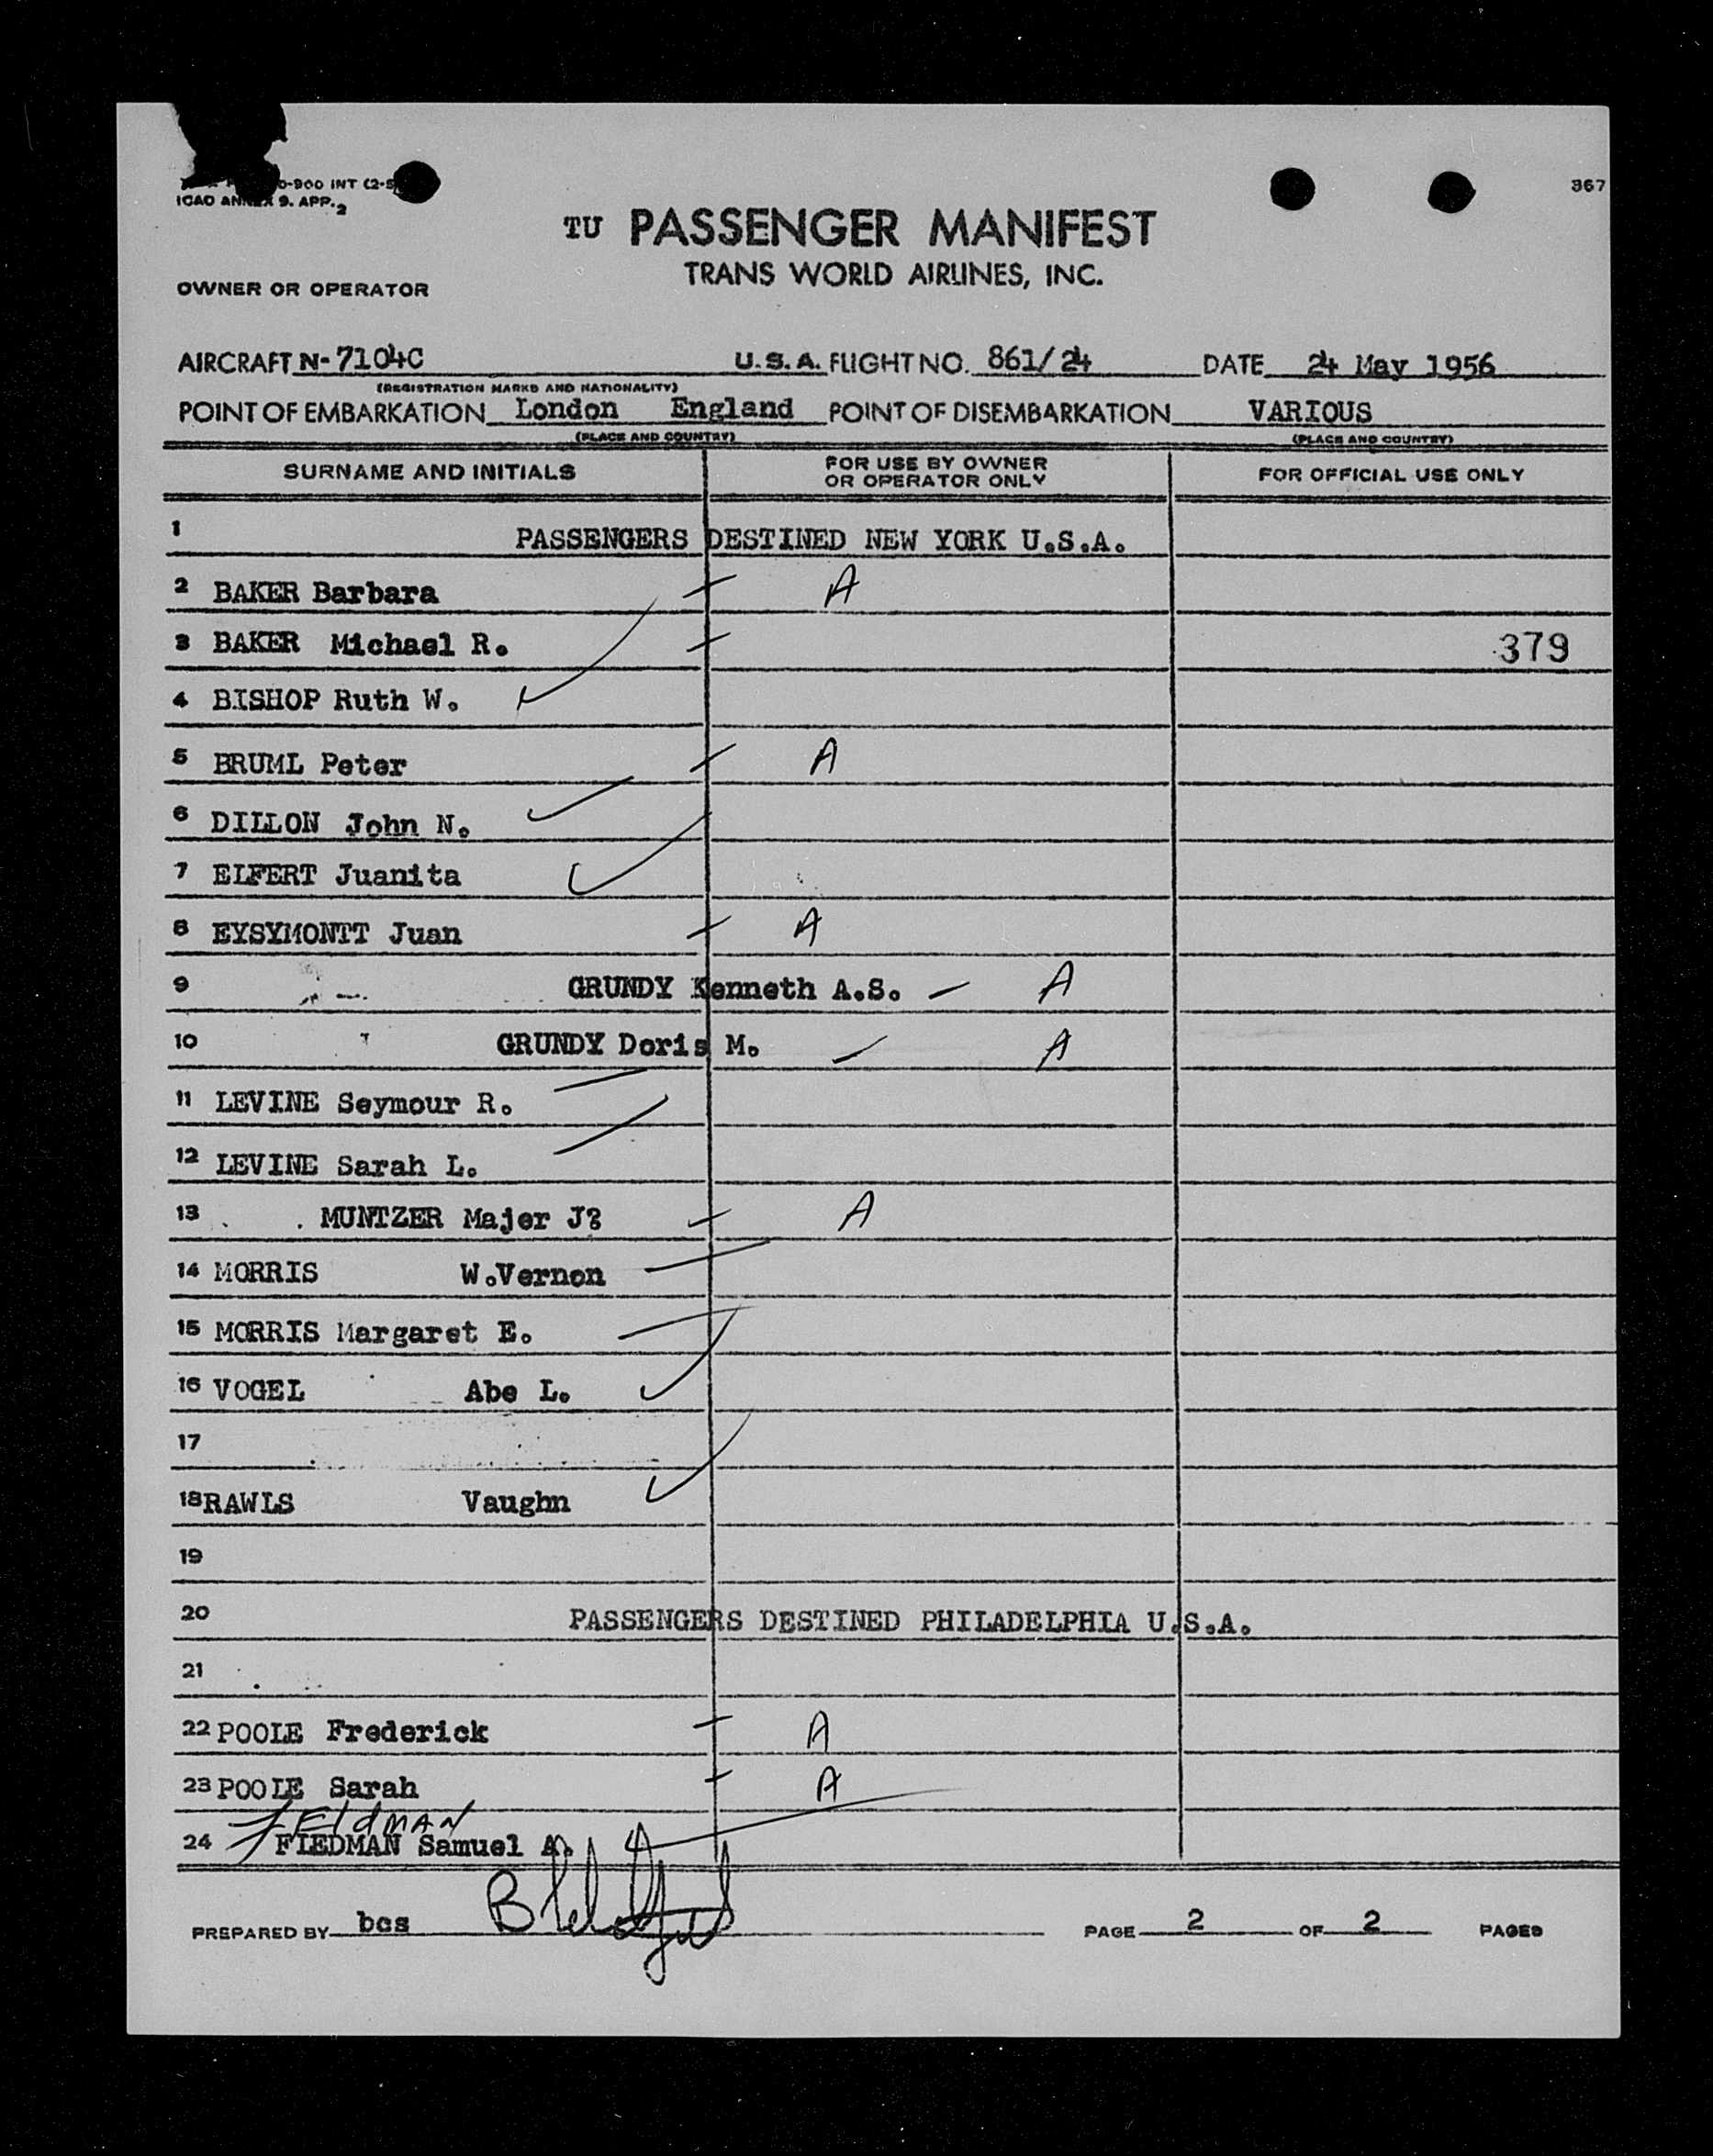 0-900 INT (2-5
ICAO ANNEX 9. APP. 2
367
TU PASSENGER MANIFEST
TRANS WORLD AIRLINES, INC.
OWNER OR OPERATOR
AIRCRAFT N-7104C U.S.A. FLIGHT NO. 861/24 DATE 24 May 1956
(REGISTRATION MARKS AND NATIONALITY)
POINT OF EMBARKATION London England POINT OF DISEMBARKATION VARIOUS
(PLACE AND COUNTRY) (PLACE AND COUNTRY)
SURNAME AND INITIALS FOR USE BY OWNER OR OPERATOR ONLY FOR OFFICIAL USE ONLY
1 PASSENGERS DESTINED NEW YORK U.S.A.
2 BAKER Barbara A
3 BAKER Michael R. 379
4 BISHOP Ruth W.
5 BRUML Peter A
6 DILLON John N.
7 EIFERT Juanita
8 EYSYMONTT Juan A
9 GRUNDY Kenneth A.S. A
10 GRUNDY Doris M. A
11 LEVINE Seymour R.
12 LEVINE Sarah L.
13 MUNTZER Majer J? A
14 MORRIS W.Vernon
15 MORRIS Margaret E.
16 VOGEL Abe L.
17
18 RAWLS Vaughn
19
20 PASSENGERS DESTINED PHILADELPHIA U.S.A.
21
22 POOLE Frederick A
23 POOLE Sarah A
FEldMAN
24 FIEDMAN Samuel A.
PREPARED BY bcs PAGE 2 OF 2 PAGES